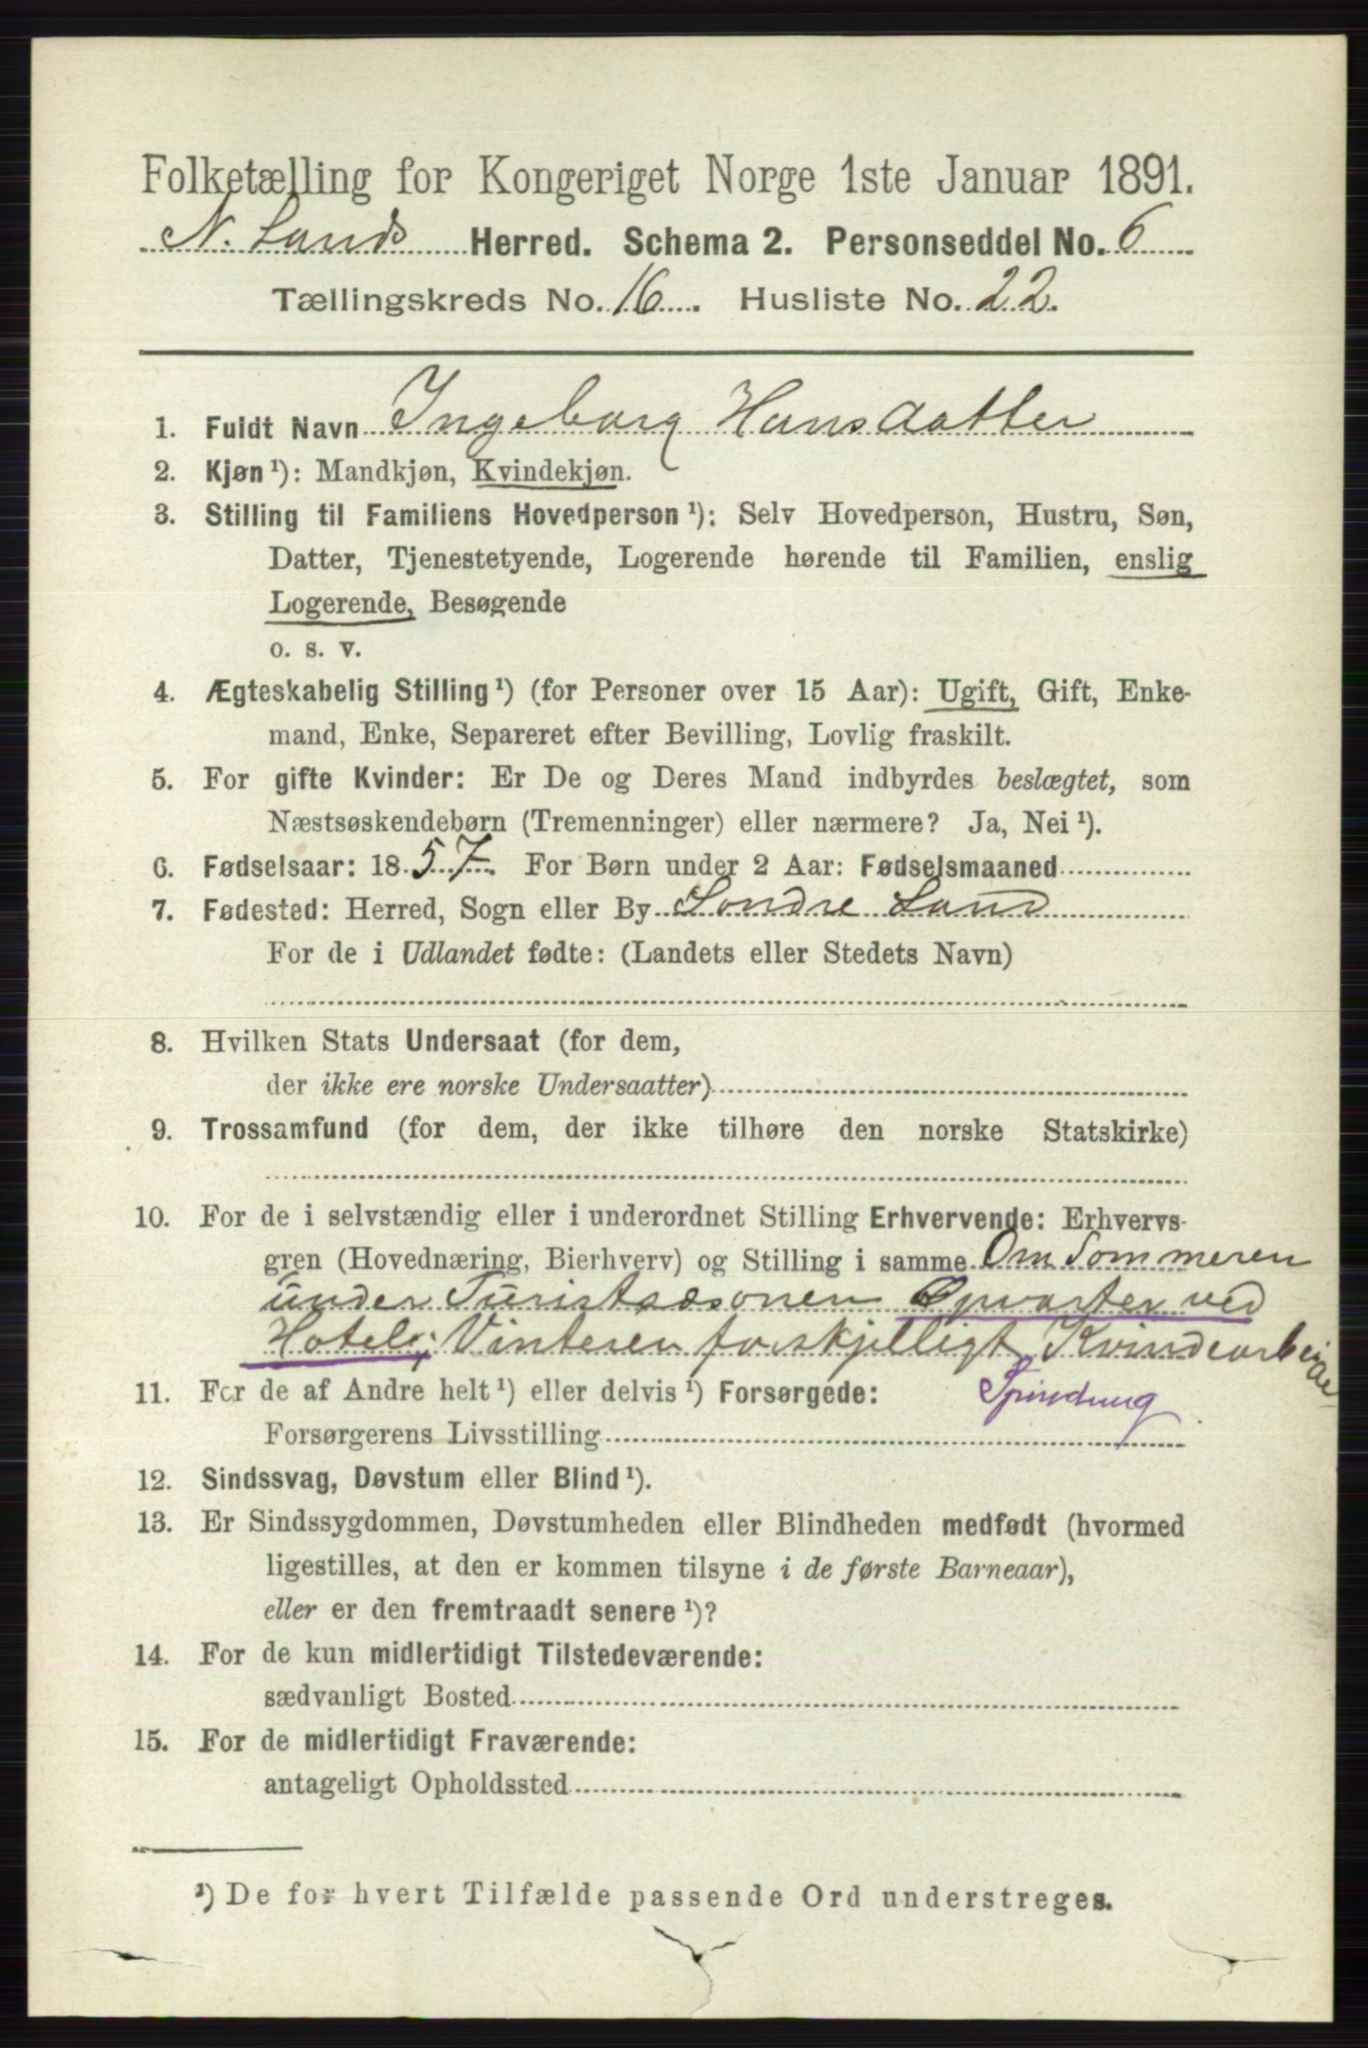 Folketælling for Kongeriget Norge 1ste Januar 1891.
N. Lands Herred. Schema 2. Personseddel No. 6
Tællingskreds No. 16. Husliste No. 22.
1. Fuldt Navn Ingeborg Hansdatter
2. Kjøn¹): Mandkjøn, Kvindekjøn.
3. Stilling til Familiens Hovedperson¹): Selv Hovedperson, Hustru, Søn,
Datter, Tjenestetyende, Logerende hørende til Familien, enslig
Logerende, Besøgende
o. s. v.
4. Ægteskabelig Stilling¹) (for Personer over 15 Aar): Ugift, Gift, Enke-
mand, Enke, Separeret efter Bevilling, Lovlig fraskilt.
5. For gifte Kvinder: Er De og Deres Mand indbyrdes beslægtet, som
Næstsøskendebørn (Tremenninger) eller nærmere? Ja, Nei¹).
6. Fødselsaar: 1857. For Børn under 2 Aar: Fødselsmaaned
7. Fødested: Herred, Sogn eller By Søndre Land
For de i Udlandet fødte: (Landets eller Stedets Navn)
8. Hvilken Stats Undersaat (for dem,
der ikke ere norske Undersaatter)
9. Trossamfund (for dem, der ikke tilhøre den norske Statskirke)
10. For de i selvstændig eller i underordnet Stilling Erhvervende: Erhvervs-
gren (Hovednæring, Bierhverv) og Stilling i samme Om Sommeren
under Turistsæsonen Opvarter ved
Hotel; Vinteren forskjelligt Kvindearbeide
11. For de af Andre helt¹) eller delvis¹) Forsørgede: Spinding
Forsørgerens Livsstilling
12. Sindssvag, Døvstum eller Blind¹).
13. Er Sindssygdommen, Døvstumheden eller Blindheden medfødt (hvormed
ligestilles, at den er kommen tilsyne i de første Barneaar),
eller er den fremtraadt senere¹)?
14. For de kun midlertidigt Tilstedeværende:
sædvanligt Bosted
15. For de midlertidigt Fraværende:
antageligt Opholdssted
¹) De for hvert Tilfælde passende Ord understreges.